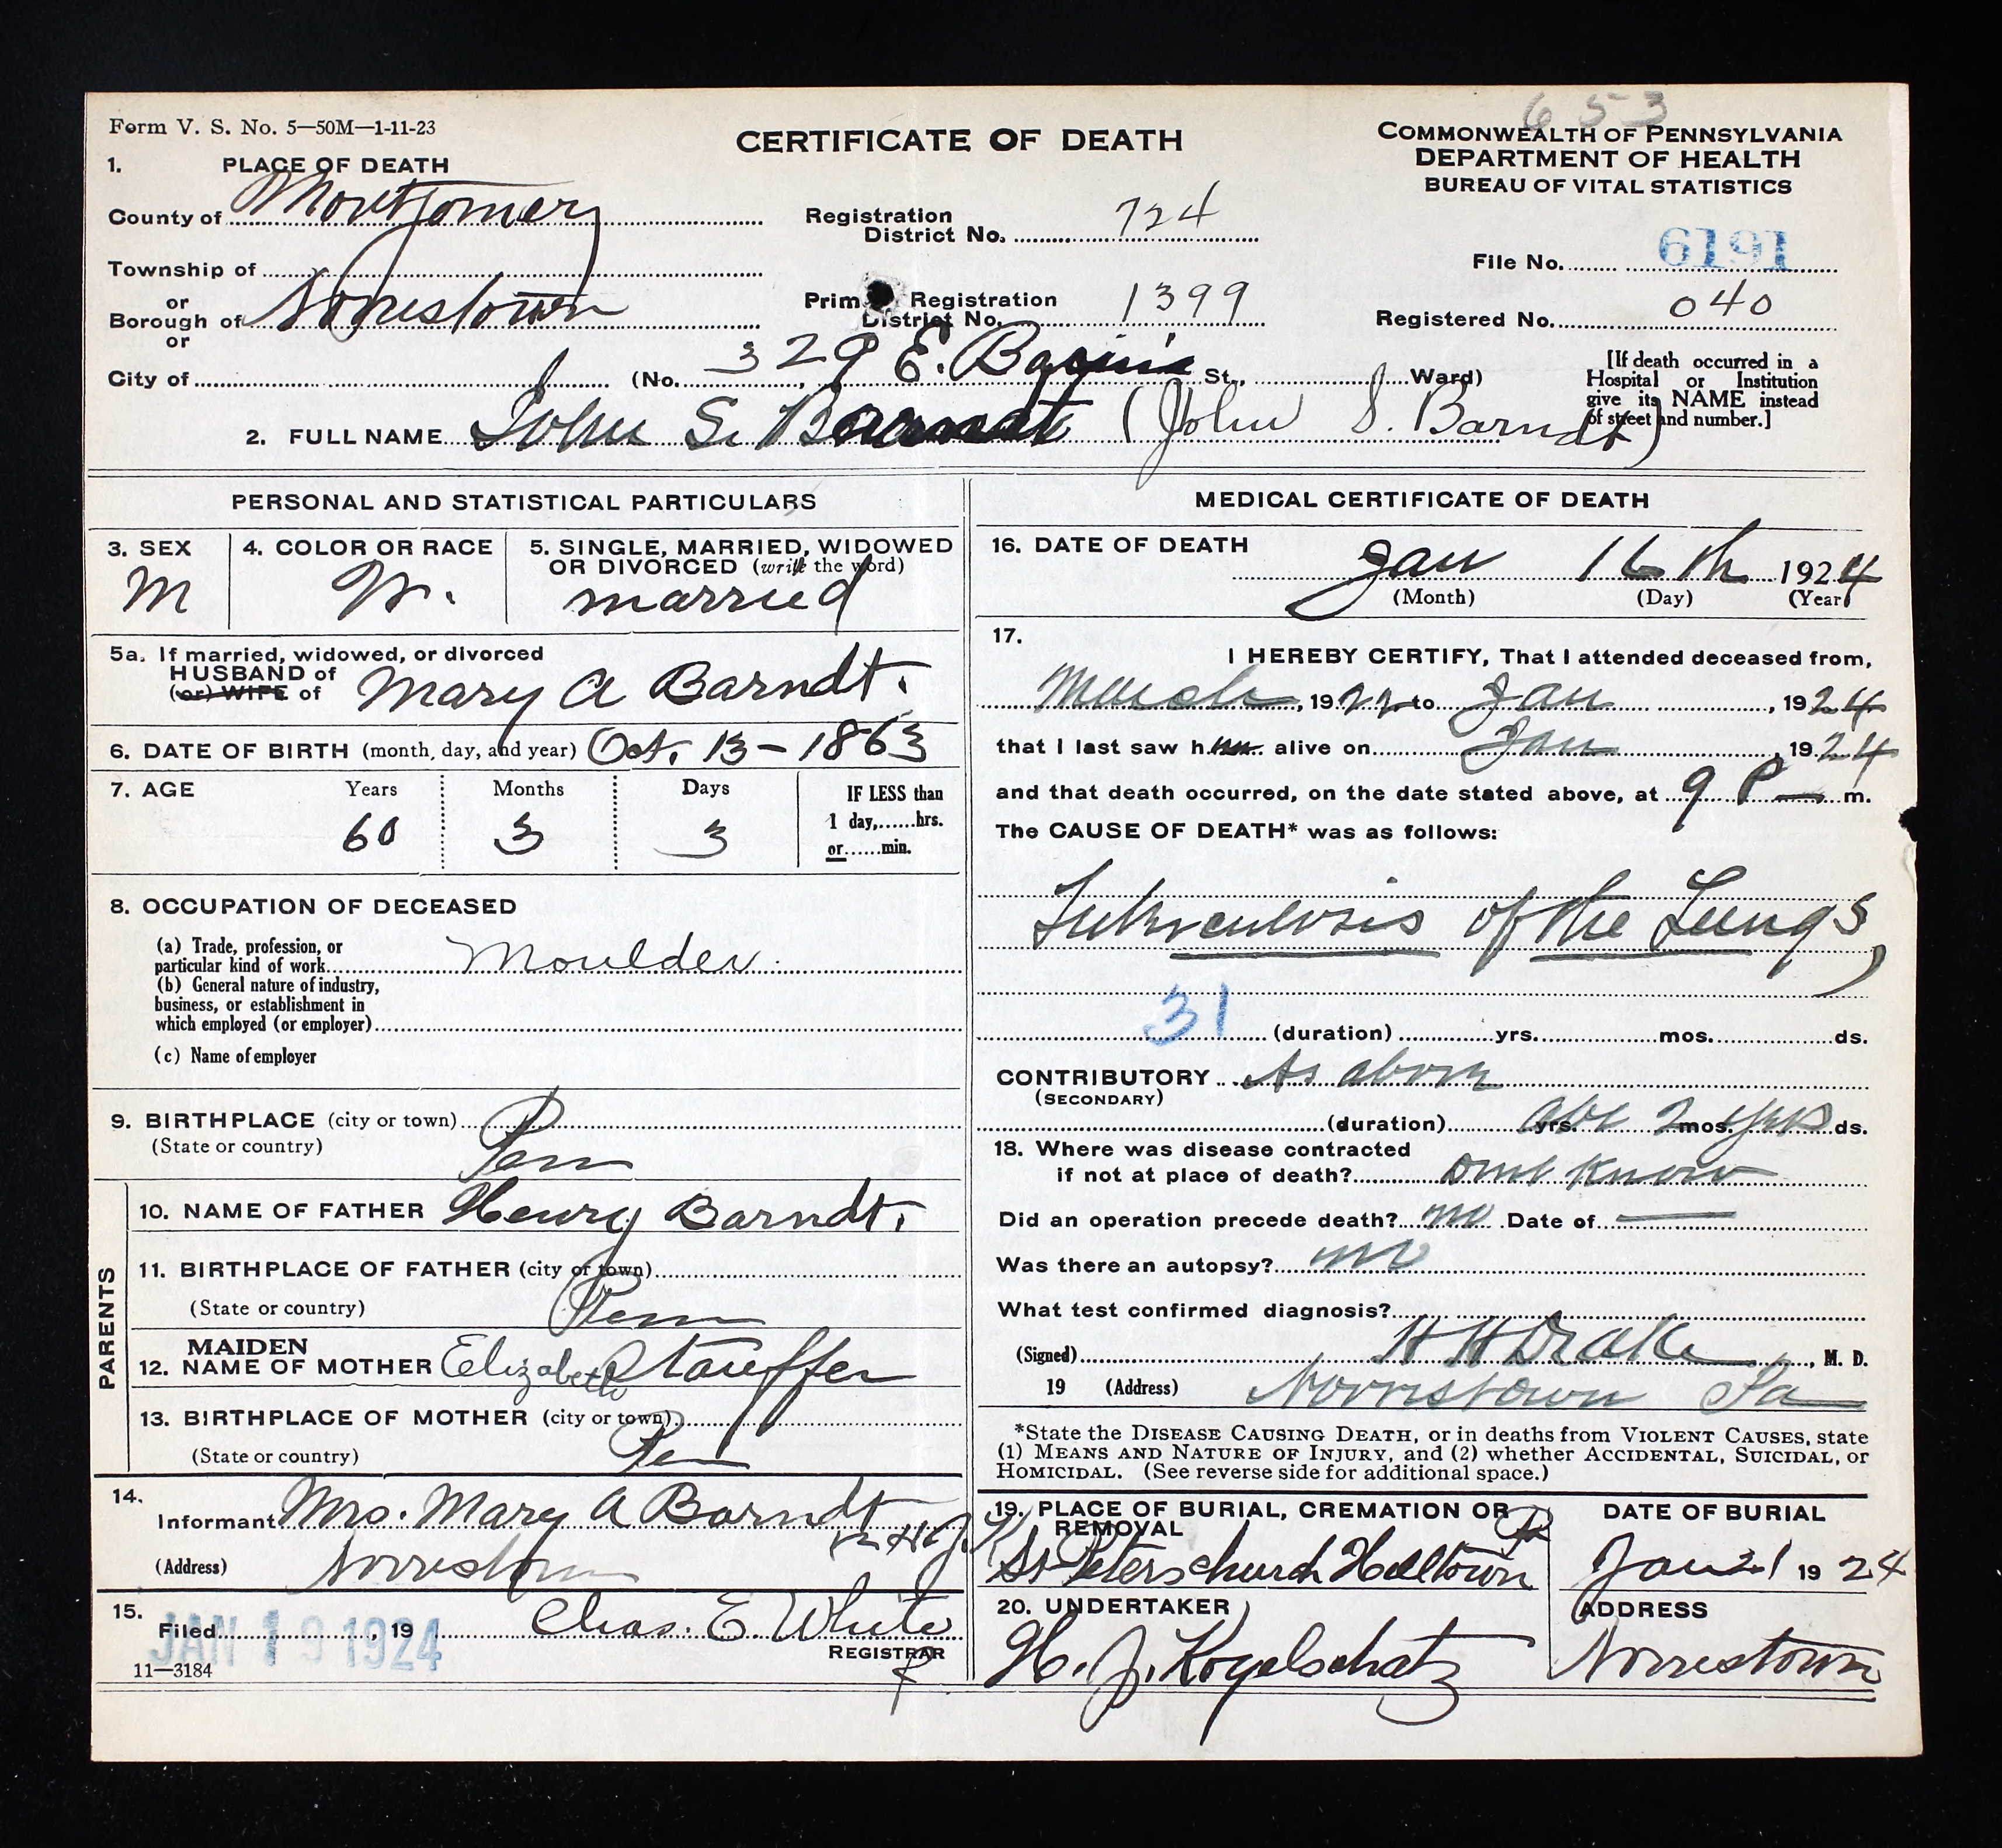 653
Form V. S. No. 5—50M—1-11-23
CERTIFICATE OF DEATH
COMMONWEALTH OF PENNSYLVANIA
DEPARTMENT OF HEALTH
BUREAU OF VITAL STATISTICS
1. PLACE OF DEATH
County of Montgomery
Registration District No. 724
File No. 6191
Township of
or
Borough of Norristown
Primary Registration District No. 1399
Registered No. 040
or
City of (No. 329 E. St., Ward)
[If death occurred in a Hospital or Institution give its NAME instead of street and number.]
2. FULL NAME John S. Barndt (John S. Barndt)
PERSONAL AND STATISTICAL PARTICULARS
3. SEX
M
4. COLOR OR RACE
W.
5. SINGLE, MARRIED, WIDOWED OR DIVORCED (write the word)
married
5a. If married, widowed, or divorced
HUSBAND of
(or) WIFE of Mary A Barndt.
6. DATE OF BIRTH (month, day, and year) Oct. 13 - 1863
7. AGE Years Months Days
60 3 3
IF LESS than
1 day,......hrs.
or......min.
8. OCCUPATION OF DECEASED
(a) Trade, profession, or
particular kind of work Moulder.
(b) General nature of industry,
business, or establishment in
which employed (or employer)
(c) Name of employer
9. BIRTHPLACE (city or town)
(State or country) Penn
PARENTS
10. NAME OF FATHER Henry Barndt.
11. BIRTHPLACE OF FATHER (city or town)
(State or country) Penn
12. MAIDEN NAME OF MOTHER Elizabeth Stauffer
13. BIRTHPLACE OF MOTHER (city or town)
(State or country) Pen
14.
Informant Mrs. Mary A Barndt
H. J. K.
(Address) Norristown
15.
Filed JAN 19 1924, 19 Chas. E. White
REGISTRAR
11—3184
MEDICAL CERTIFICATE OF DEATH
16. DATE OF DEATH
Jan 16th 1924
(Month) (Day) (Year)
17.
I HEREBY CERTIFY, That I attended deceased from,
March, 1922 to Jan, 1924
that I last saw him alive on Jan, 1924
and that death occurred, on the date stated above, at 9 P — m.
The CAUSE OF DEATH* was as follows:
Tuberculosis of the Lungs,
31 (duration) yrs. mos. ds.
CONTRIBUTORY As above
(SECONDARY)
(duration) abt yrs. 2 mos. yrs ds.
18. Where was disease contracted
if not at place of death? dont know
Did an operation precede death? no Date of —
Was there an autopsy? no
What test confirmed diagnosis?
(Signed) H H Drake, M. D.
19 (Address) Norristown Pa
*State the DISEASE CAUSING DEATH, or in deaths from VIOLENT CAUSES, state
(1) MEANS AND NATURE OF INJURY, and (2) whether ACCIDENTAL, SUICIDAL, or
HOMICIDAL. (See reverse side for additional space.)
19. PLACE OF BURIAL, CREMATION OR REMOVAL
St Peters church Hilltown Pa
DATE OF BURIAL
Jan 21 1924
20. UNDERTAKER
H. J. Kogelschatz
ADDRESS
Norristown